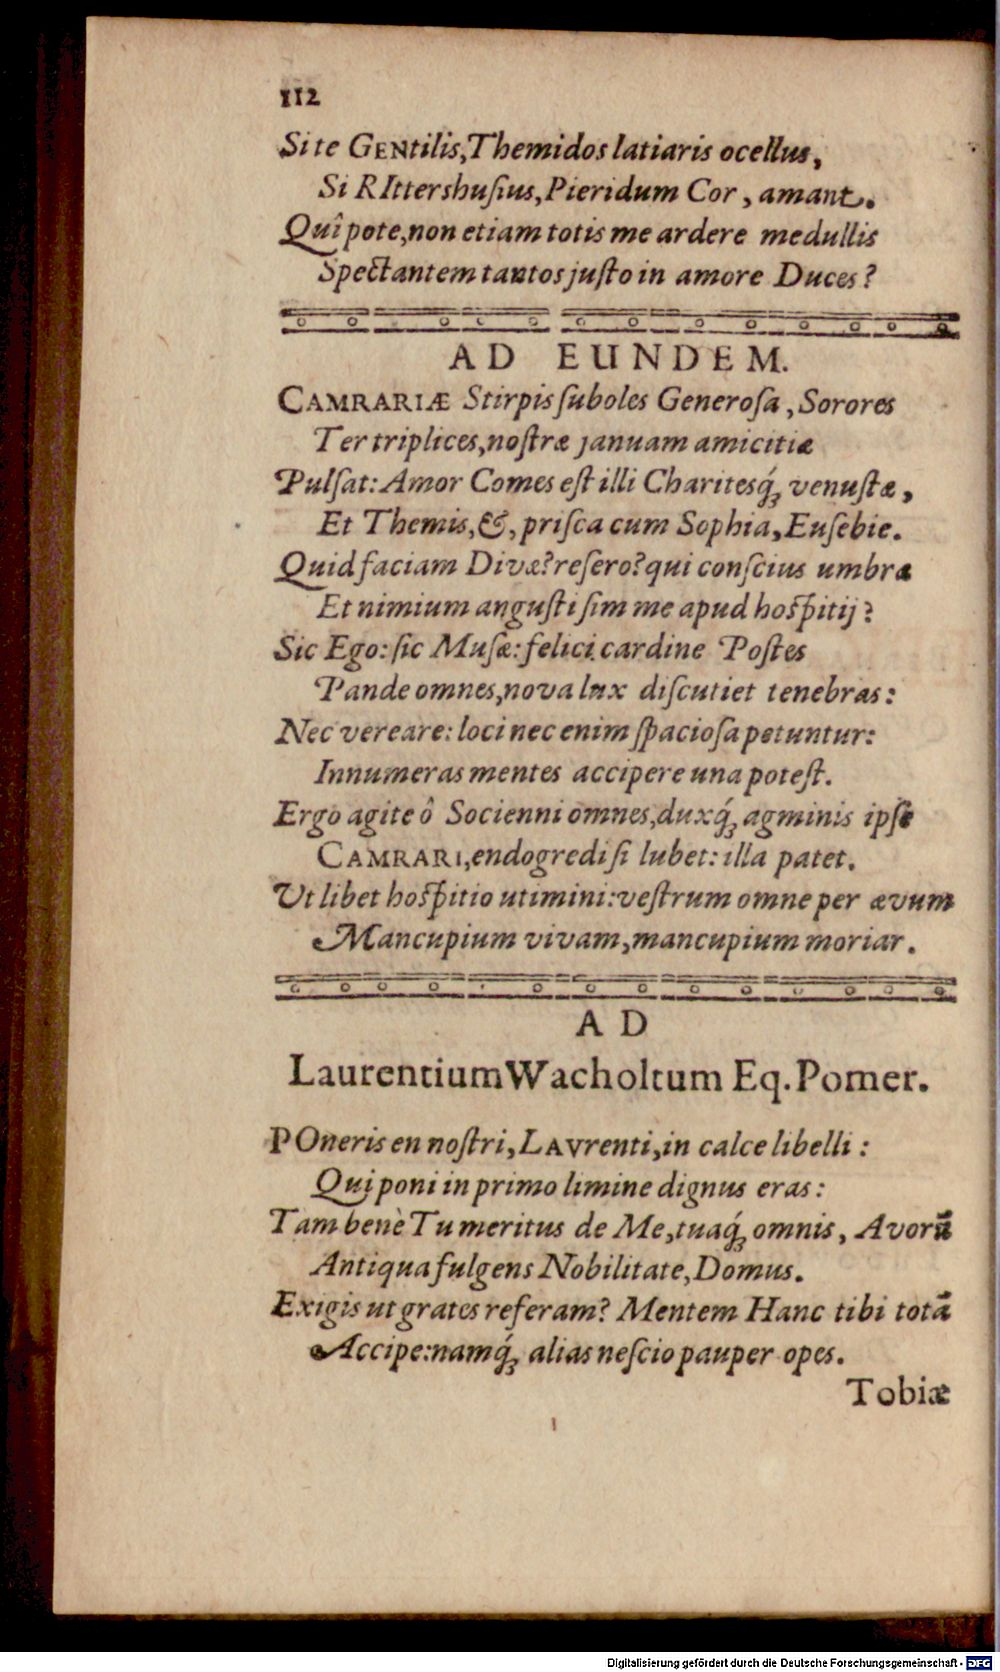 112
Si te GENtilis, Themidos latiaris ocellus,
Si RIttershuſius, Pieridum Cor, amant.
Quî pote, non etiam totis me ardere medullis
Spectantem tantos juſto in amore Duces?
AD EUNDEM.
CAMRARIÆ Stirpis ſuboles Generoſa, Sorores
Ter triplices, noſtræ januam amicitiæ
Pulſat: Amor Comes eſt illi Charitesq́; venuſtæ,
Et Themis, &, priſca cum Sophia, Euſebie.
Quid faciam Divæ? reſero? qui conſcius umbræ
Et nimium anguſti ſim me apud hoſpitij?
Sic Ego: ſic Muſæ: felici cardine Poſtes
Pande omnes, nova lux diſcutiet tenebras:
Nec vereare: loci nec enim ſpacioſa petuntur:
Innumeras mentes accipere una poteſt.
Ergo agite ô Socienni omnes, duxq́; agminis ipſe
CAMRARI, endogredi ſi lubet: illa patet.
Ut libet hoſpitio utimini: veſtrum omne per ævum
Mancupium vivam, mancupium moriar.
AD
Laurentium Wacholtum Eq. Pomer.
POneris en noſtri, LAVrenti, in calce libelli:
Qui poni in primo limine dignus eras:
Tam benè Tu meritus de Me, tuaq́; omnis, Avorũ
Antiqua fulgens Nobilitate, Domus.
Exigis ut grates referam? Mentem Hanc tibi totã
Accipe: namq́; alias neſcio pauper opes.
Tobiæ
Digitalisierung gefördert durch die Deutsche Forschungsgemeinschaft - DFG